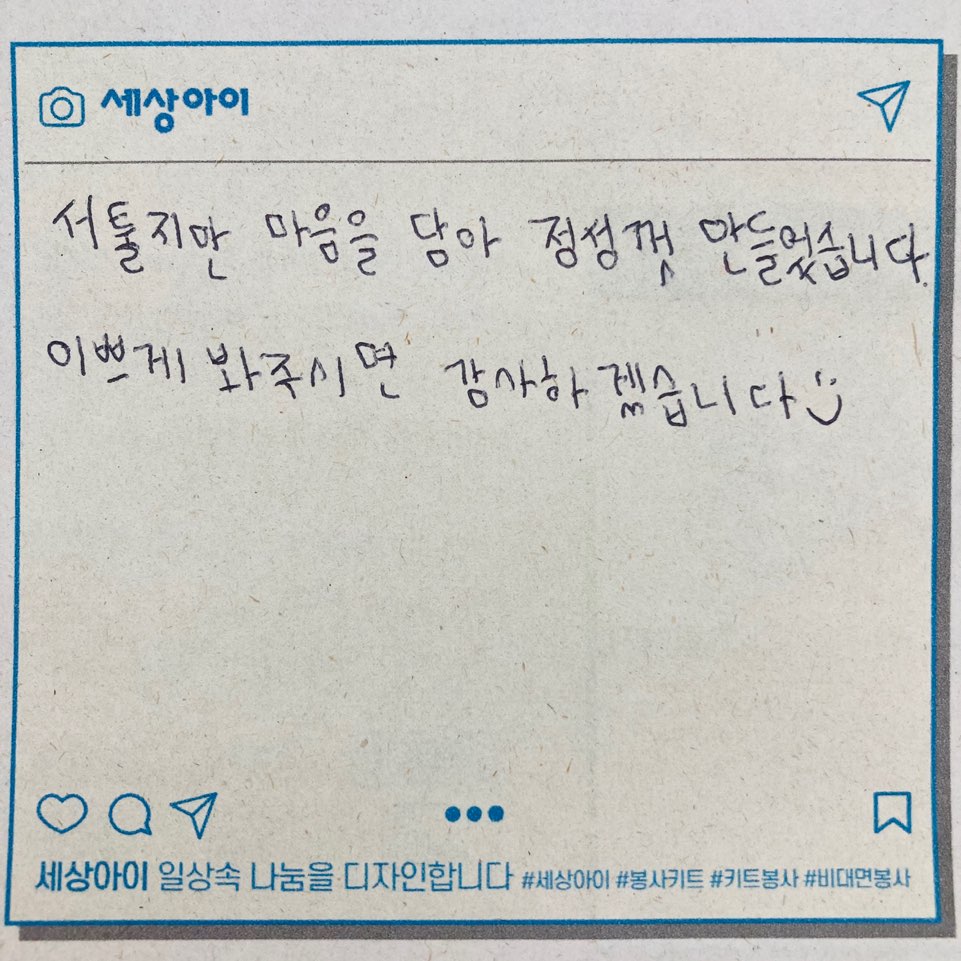 세상아이
서툴지만 마음을 담아 정성껏 만들었습니다.
이쁘게 봐주시면 감사하겠습니다
세상아이 일상속 나눔을 디자인합니다 #세상아이 #봉사키트 #키트봉사 #비대면봉사